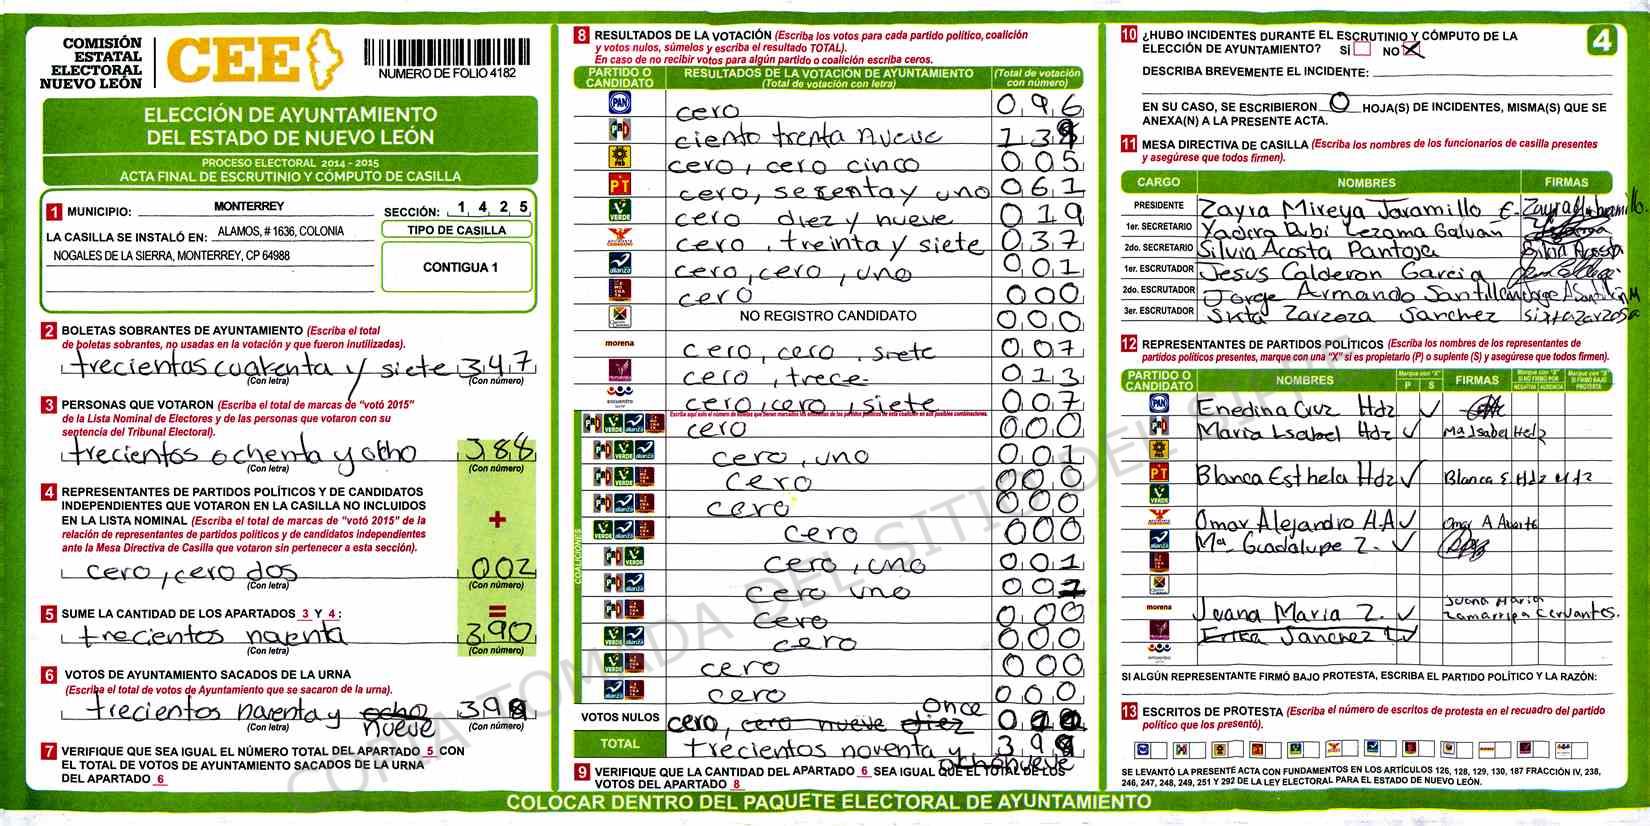 COMISIÓN
ESTATAL
ELECTORAL
NUEVO LEÓN
CEE
NUMERO DE FOLIO 4182
ELECCIÓN DE AYUNTAMIENTO
DEL ESTADO DE NUEVO LEÓN
PROCESO ELECTORAL 2014 - 2015
ACTA FINAL DE ESCRUTINIO Y CÓMPUTO DE CASILLA
1 MUNICIPIO: MONTERREY SECCIÓN: 1 4 2 5
LA CASILLA SE INSTALÓ EN: ALAMOS, # 1636, COLONIA
NOGALES DE LA SIERRA, MONTERREY, CP 64988
TIPO DE CASILLA
CONTIGUA 1
2 BOLETAS SOBRANTES DE AYUNTAMIENTO (Escriba el total
de boletas sobrantes, no usadas en la votación y que fueron inutilizadas).
trecientas cuarenta y siete 347
(Con letra) (Con número)
3 PERSONAS QUE VOTARON (Escriba el total de marcas de “votó 2015”
de la Lista Nominal de Electores y de las personas que votaron con su
sentencia del Tribunal Electoral).
trecientos ochenta y ocho 388
(Con letra) (Con número)
4 REPRESENTANTES DE PARTIDOS POLÍTICOS Y DE CANDIDATOS
INDEPENDIENTES QUE VOTARON EN LA CASILLA NO INCLUIDOS
EN LA LISTA NOMINAL (Escriba el total de marcas de “votó 2015” de la
relación de representantes de partidos políticos y de candidatos independientes
ante la Mesa Directiva de Casilla que votaron sin pertenecer a esta sección).
+
cero, cero dos 002
(Con letra) (Con número)
5 SUME LA CANTIDAD DE LOS APARTADOS 3 Y 4 :
=
trecientos noventa 390
(Con letra) (Con número)
6 VOTOS DE AYUNTAMIENTO SACADOS DE LA URNA
(Escriba el total de votos de Ayuntamiento que se sacaron de la urna).
trecientos noventa y ocho 399
nueve
(Con letra) (Con número)
7 VERIFIQUE QUE SEA IGUAL EL NÚMERO TOTAL DEL APARTADO 5 CON
EL TOTAL DE VOTOS DE AYUNTAMIENTO SACADOS DE LA URNA
DEL APARTADO 6
8 RESULTADOS DE LA VOTACIÓN (Escriba los votos para cada partido político, coalición
y votos nulos, súmelos y escriba el resultado TOTAL).
En caso de no recibir votos para algún partido o coalición escriba ceros.
PARTIDO O CANDIDATO
RESULTADOS DE LA VOTACIÓN DE AYUNTAMIENTO
(Total de votación con letra)
(Total de votación con número)
PAN cero 096
PRD ciento trenta nueve 139
PRD cero, cero cinco 005
PT cero, sesenta y uno 061
VERDE cero diez y nueve 019
cero, treinta y siete 037
alianza cero, cero, uno 001
cero 000
NO REGISTRO CANDIDATO 000
morena cero, cero, siete 007
cero, trece 013
encuentro cero, cero, siete 007
COALICIONES
cero 000
cero, uno 001
cero 000
cero 000
cero 000
cero, uno 001
cero uno 001
cero 000
cero 000
cero 000
cero 000
once
VOTOS NULOS cero, cero nueve diez
TOTAL trecientos noventa y 399
ocho nueve
9 VERIFIQUE QUE LA CANTIDAD DEL APARTADO 6 SEA IGUAL QUE EL TOTAL DE LOS
VOTOS DEL APARTADO 8
10 ¿HUBO INCIDENTES DURANTE EL ESCRUTINIO Y CÓMPUTO DE LA
ELECCIÓN DE AYUNTAMIENTO? SÍ NO X
4
DESCRIBA BREVEMENTE EL INCIDENTE:
EN SU CASO, SE ESCRIBIERON 0 HOJA(S) DE INCIDENTES, MISMA(S) QUE SE
ANEXA(N) A LA PRESENTE ACTA.
11 MESA DIRECTIVA DE CASILLA (Escriba los nombres de los funcionarios de casilla presentes
y asegúrese que todos firmen).
CARGO NOMBRES FIRMAS
PRESIDENTE Zayra Mireya Jaramillo E.
1er. SECRETARIO Yadira Rubi Lezama Galvan
2do. SECRETARIO Silvia Acosta Pantoja Silvia Acosta
1er. ESCRUTADOR Jesus Calderon Garcia
2do. ESCRUTADOR Jorge Armando Santillan
3er. ESCRUTADOR Sixta Zarzoza Sanchez sixta zarzosa
12 REPRESENTANTES DE PARTIDOS POLÍTICOS (Escriba los nombres de los representantes de
partidos políticos presentes, marque con una “X” si es propietario (P) o suplente (S) y asegúrese que todos firmen).
PARTIDO O CANDIDATO NOMBRES Marque con “X” P S FIRMAS Marque con “X” SI NO FIRMÓ POR NEGATIVA AUSENCIA Marque con “X” SI FIRMÓ BAJO PROTESTA
PAN Enedina Cruz Hdz
Maria Isabel Hdz Ma Isabel Hdz
PT Blanca Esthela Hdz Blanca E Hdz Hdz
VERDE
Omar Alejandro A.A Omar A
alianza Ma. Guadalupe Z.
morena Juana Maria Z. Juana Maria
Zamarripa Cervantes.
Erika Sanchez
encuentro
SI ALGÚN REPRESENTANTE FIRMÓ BAJO PROTESTA, ESCRIBA EL PARTIDO POLÍTICO Y LA RAZÓN:
13 ESCRITOS DE PROTESTA (Escriba el número de escritos de protesta en el recuadro del partido
político que los presentó).
SE LEVANTÓ LA PRESENTE ACTA CON FUNDAMENTOS EN LOS ARTÍCULOS 126, 128, 129, 130, 187 FRACCIÓN IV, 238,
246, 247, 248, 249, 251 Y 292 DE LA LEY ELECTORAL PARA EL ESTADO DE NUEVO LEÓN.
COLOCAR DENTRO DEL PAQUETE ELECTORAL DE AYUNTAMIENTO
COPIA TOMADA DEL SITIO DEL SIPRE